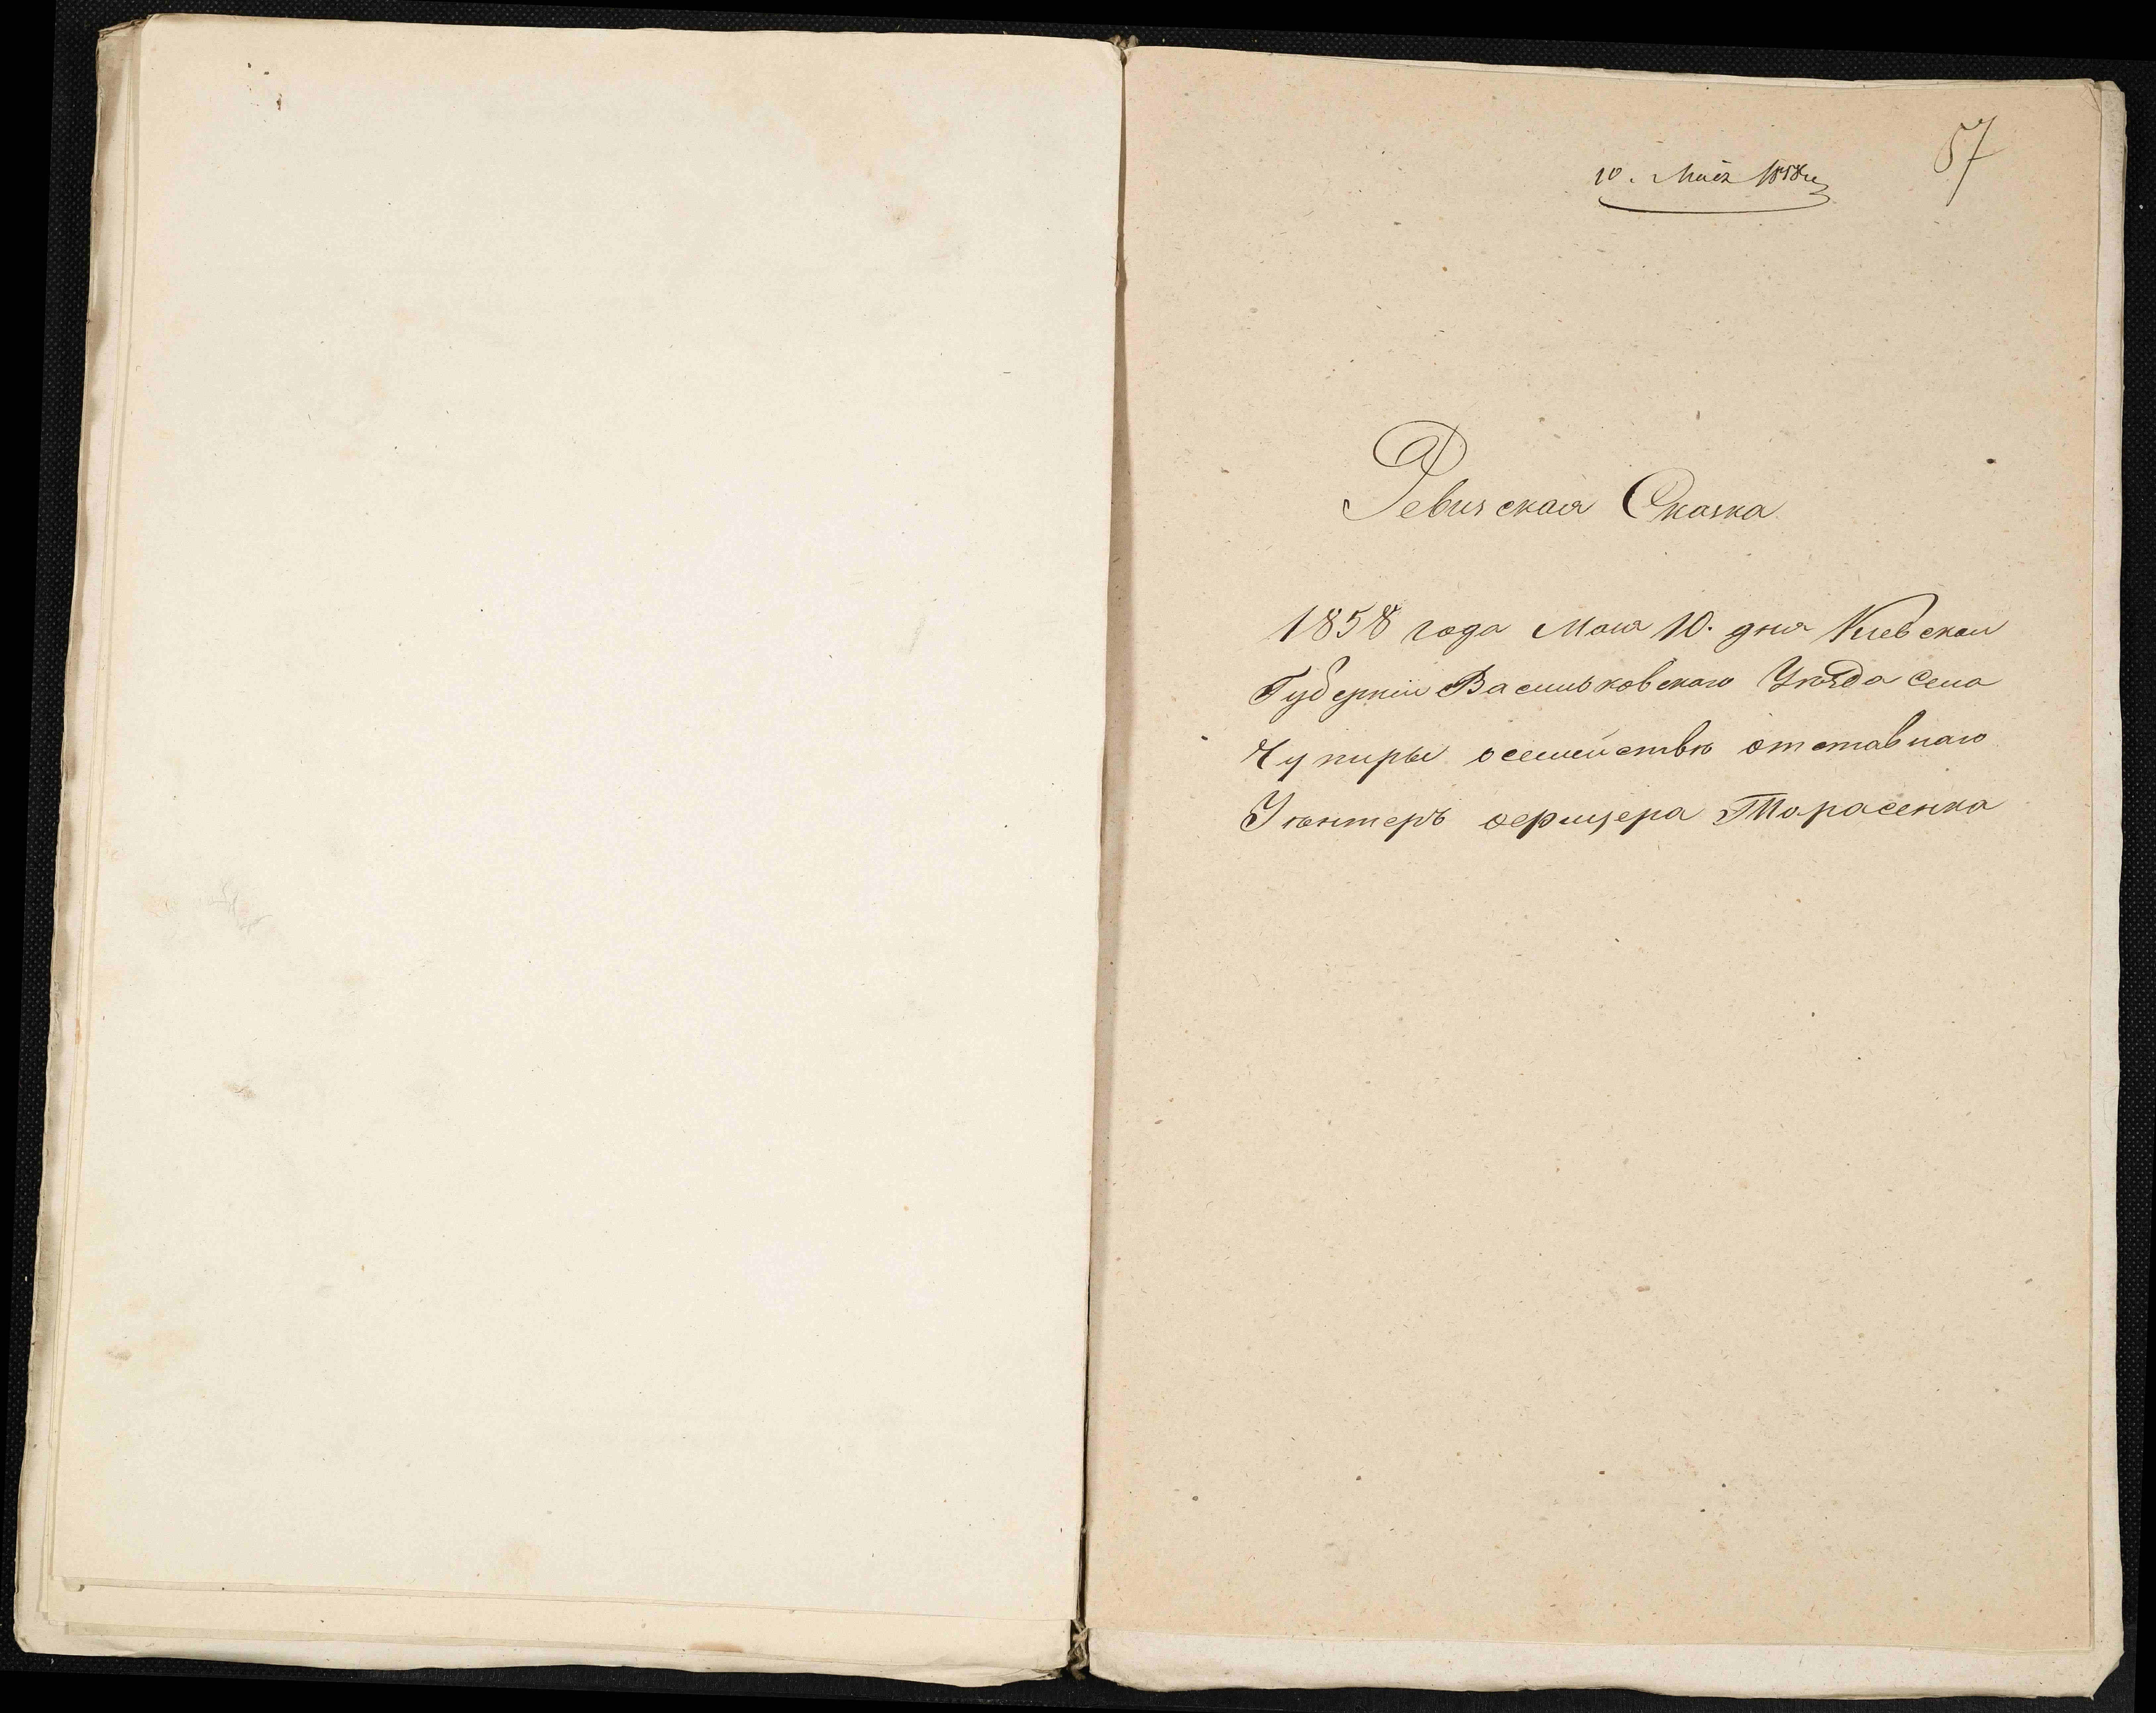 57
10. Маія 1858 г
Ревизская Сказка
1858 года Маия 10. дня Киевскои
Губерніи Васильковскаго Уюзда Села
Чупиры осемействю отставнаго
Уюнтеръ оефицера Тарасенка